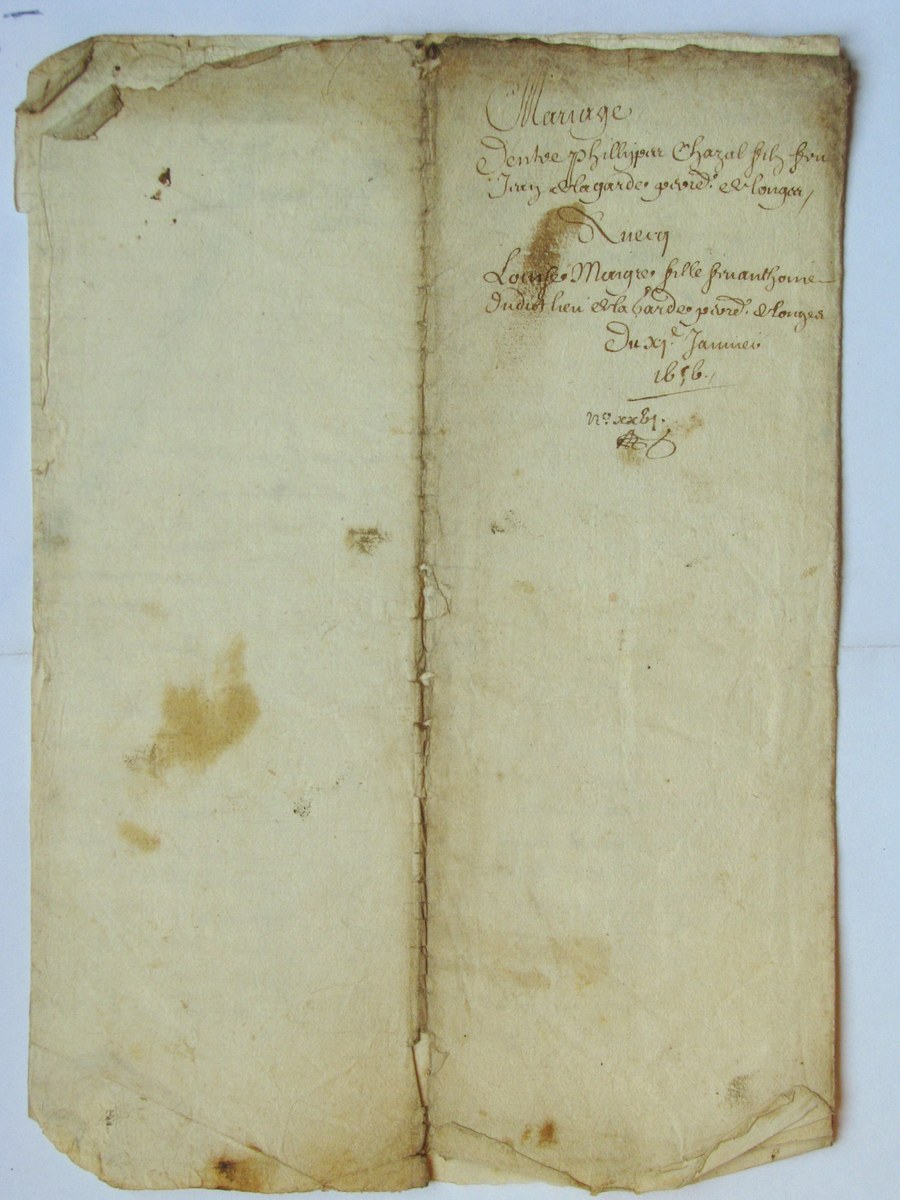 Mariage
Dentre phillipes Chazal filz feu
Jean de la garde par.d. de longes
Avecq
Louise Maigre fille feu anthoine
dudict lieu de la garde par.d. de longes
Du xj.e Janvier
No. xxvj.